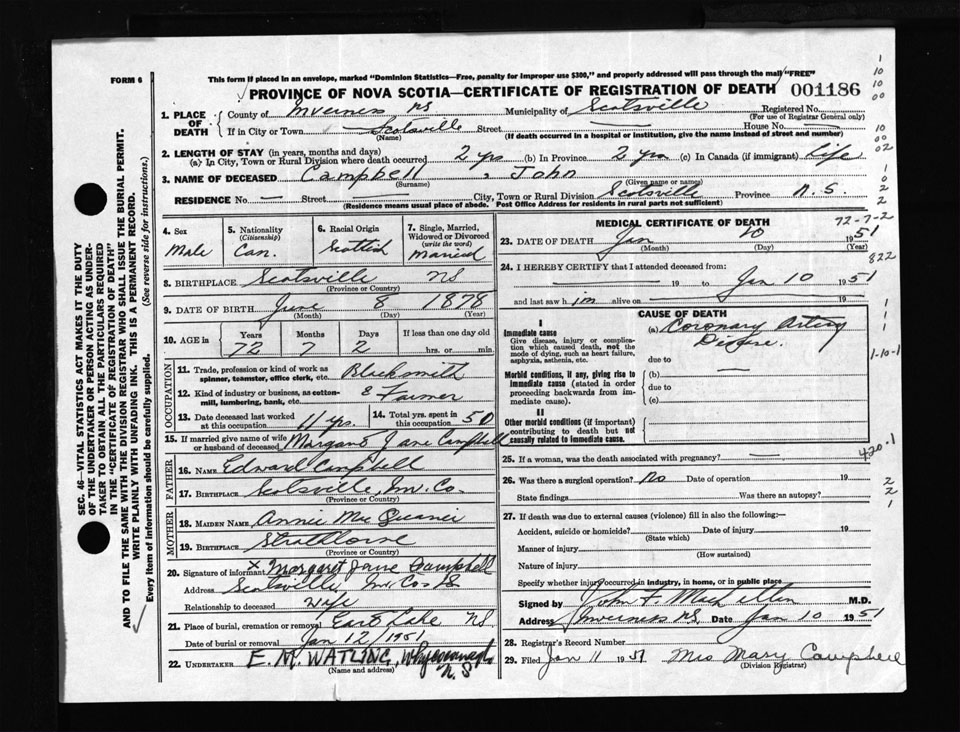 FORM 6
This form if placed in an envelope, marked "Dominion Statistics—Free, penalty for improper use $300," and properly addressed will pass through the mail "FREE"
PROVINCE OF NOVA SCOTIA—CERTIFICATE OF REGISTRATION OF DEATH 001186
1. PLACE OF DEATH
County of Inverness NS Municipality of Scotsville Registered No.
(For use of Registrar General only)
If in City or Town Scotsville Street House No.
(Name) (If death occurred in a hospital or institution, give the name instead of street and number)
2. LENGTH OF STAY (in years, months and days)
(a) In City, Town or Rural Division where death occurred 2 yrs (b) In Province 2 yrs (c) In Canada (if immigrant) life
3. NAME OF DECEASED Campbell, John
(Surname) (Given name or names)
RESIDENCE No. — Street — City, Town or Rural Division Scotsville Province N.S.
(Residence means usual place of abode. Post Office Address for residents in rural parts not sufficient)
4. Sex
Male
5. Nationality
(Citizenship)
Can.
6. Racial Origin
Scottish
7. Single, Married, Widowed or Divorced
(write the word)
Married
8. BIRTHPLACE Scotsville NS
(Province or Country)
9. DATE OF BIRTH June 8 1878
(Month) (Day) (Year)
10. AGE in
Years Months Days If less than one day old
72 7 2 hrs. or min.
OCCUPATION
11. Trade, profession or kind of work as spinner, teamster, office clerk, etc. Blacksmith
12. Kind of industry or business, as cotton-mill, lumbering, bank, etc. & Farmer
13. Date deceased last worked at this occupation 11 yrs.
14. Total yrs. spent in this occupation 50
15. If married give name of wife or husband of deceased Margaret Jane Campbell
FATHER
16. NAME Edward Campbell
17. BIRTHPLACE Scotsville, Inv. Co.
(Province or Country)
MOTHER
18. MAIDEN NAME Annie Mac
19. BIRTHPLACE Strathlorne
(Province or Country)
20. Signature of informant x Margaret Jane Campbell
Address Scotsville Inv. Co. NS
Relationship to deceased Wife
21. Place of burial, cremation or removal East Lake NS
Date of burial or removal Jan 12/1951
22. UNDERTAKER E. M. WATLING, Whycocomagh
(Name and address) N.S
MEDICAL CERTIFICATE OF DEATH
72-7-2
23. DATE OF DEATH Jan 10 1951
(Month) (Day) (Year)
822
24. I HEREBY CERTIFY that I attended deceased from:
19 to Jan 10 1951
and last saw h im alive on 19
CAUSE OF DEATH
I
Immediate cause
Give disease, injury or complication which caused death, not the mode of dying, such as heart failure, asphyxia, asthenia, etc.
(a) Coronary Artery Disease.
due to
Morbid conditions, if any, giving rise to immediate cause (stated in order proceeding backwards from immediate cause).
(b)
due to
(c)
II
Other morbid conditions (if important) contributing to death but not causally related to immediate cause.
1-10-1
420.1
25. If a woman, was the death associated with pregnancy? —
26. Was there a surgical operation? No Date of operation 19
State findings Was there an autopsy?
27. If death was due to external causes (violence) fill in also the following:—
Accident, suicide or homicide? Date of injury 19
(State which)
Manner of injury
(How sustained)
Nature of injury
Specify whether injury occurred in industry, in home, or in public place
Signed by John F MacLellan M.D.
Address Inverness NS. Date Jan 10 1951
28. Registrar's Record Number
29. Filed Jan 11 1951 Mrs Mary Campbell
(Division Registrar)
SEC. 46—VITAL STATISTICS ACT MAKES IT THE DUTY
OF THE UNDERTAKER OR PERSON ACTING AS UNDER-
TAKER TO OBTAIN ALL THE PARTICULARS REQUIRED
IN THE "CERTIFICATE OF REGISTRATION OF DEATH"
AND TO FILE THE SAME WITH THE DIVISION REGISTRAR WHO SHALL ISSUE THE BURIAL PERMIT.
WRITE PLAINLY WITH UNFADING INK. THIS IS A PERMANENT RECORD.
Every item of information should be carefully supplied. (See reverse side for instructions.)